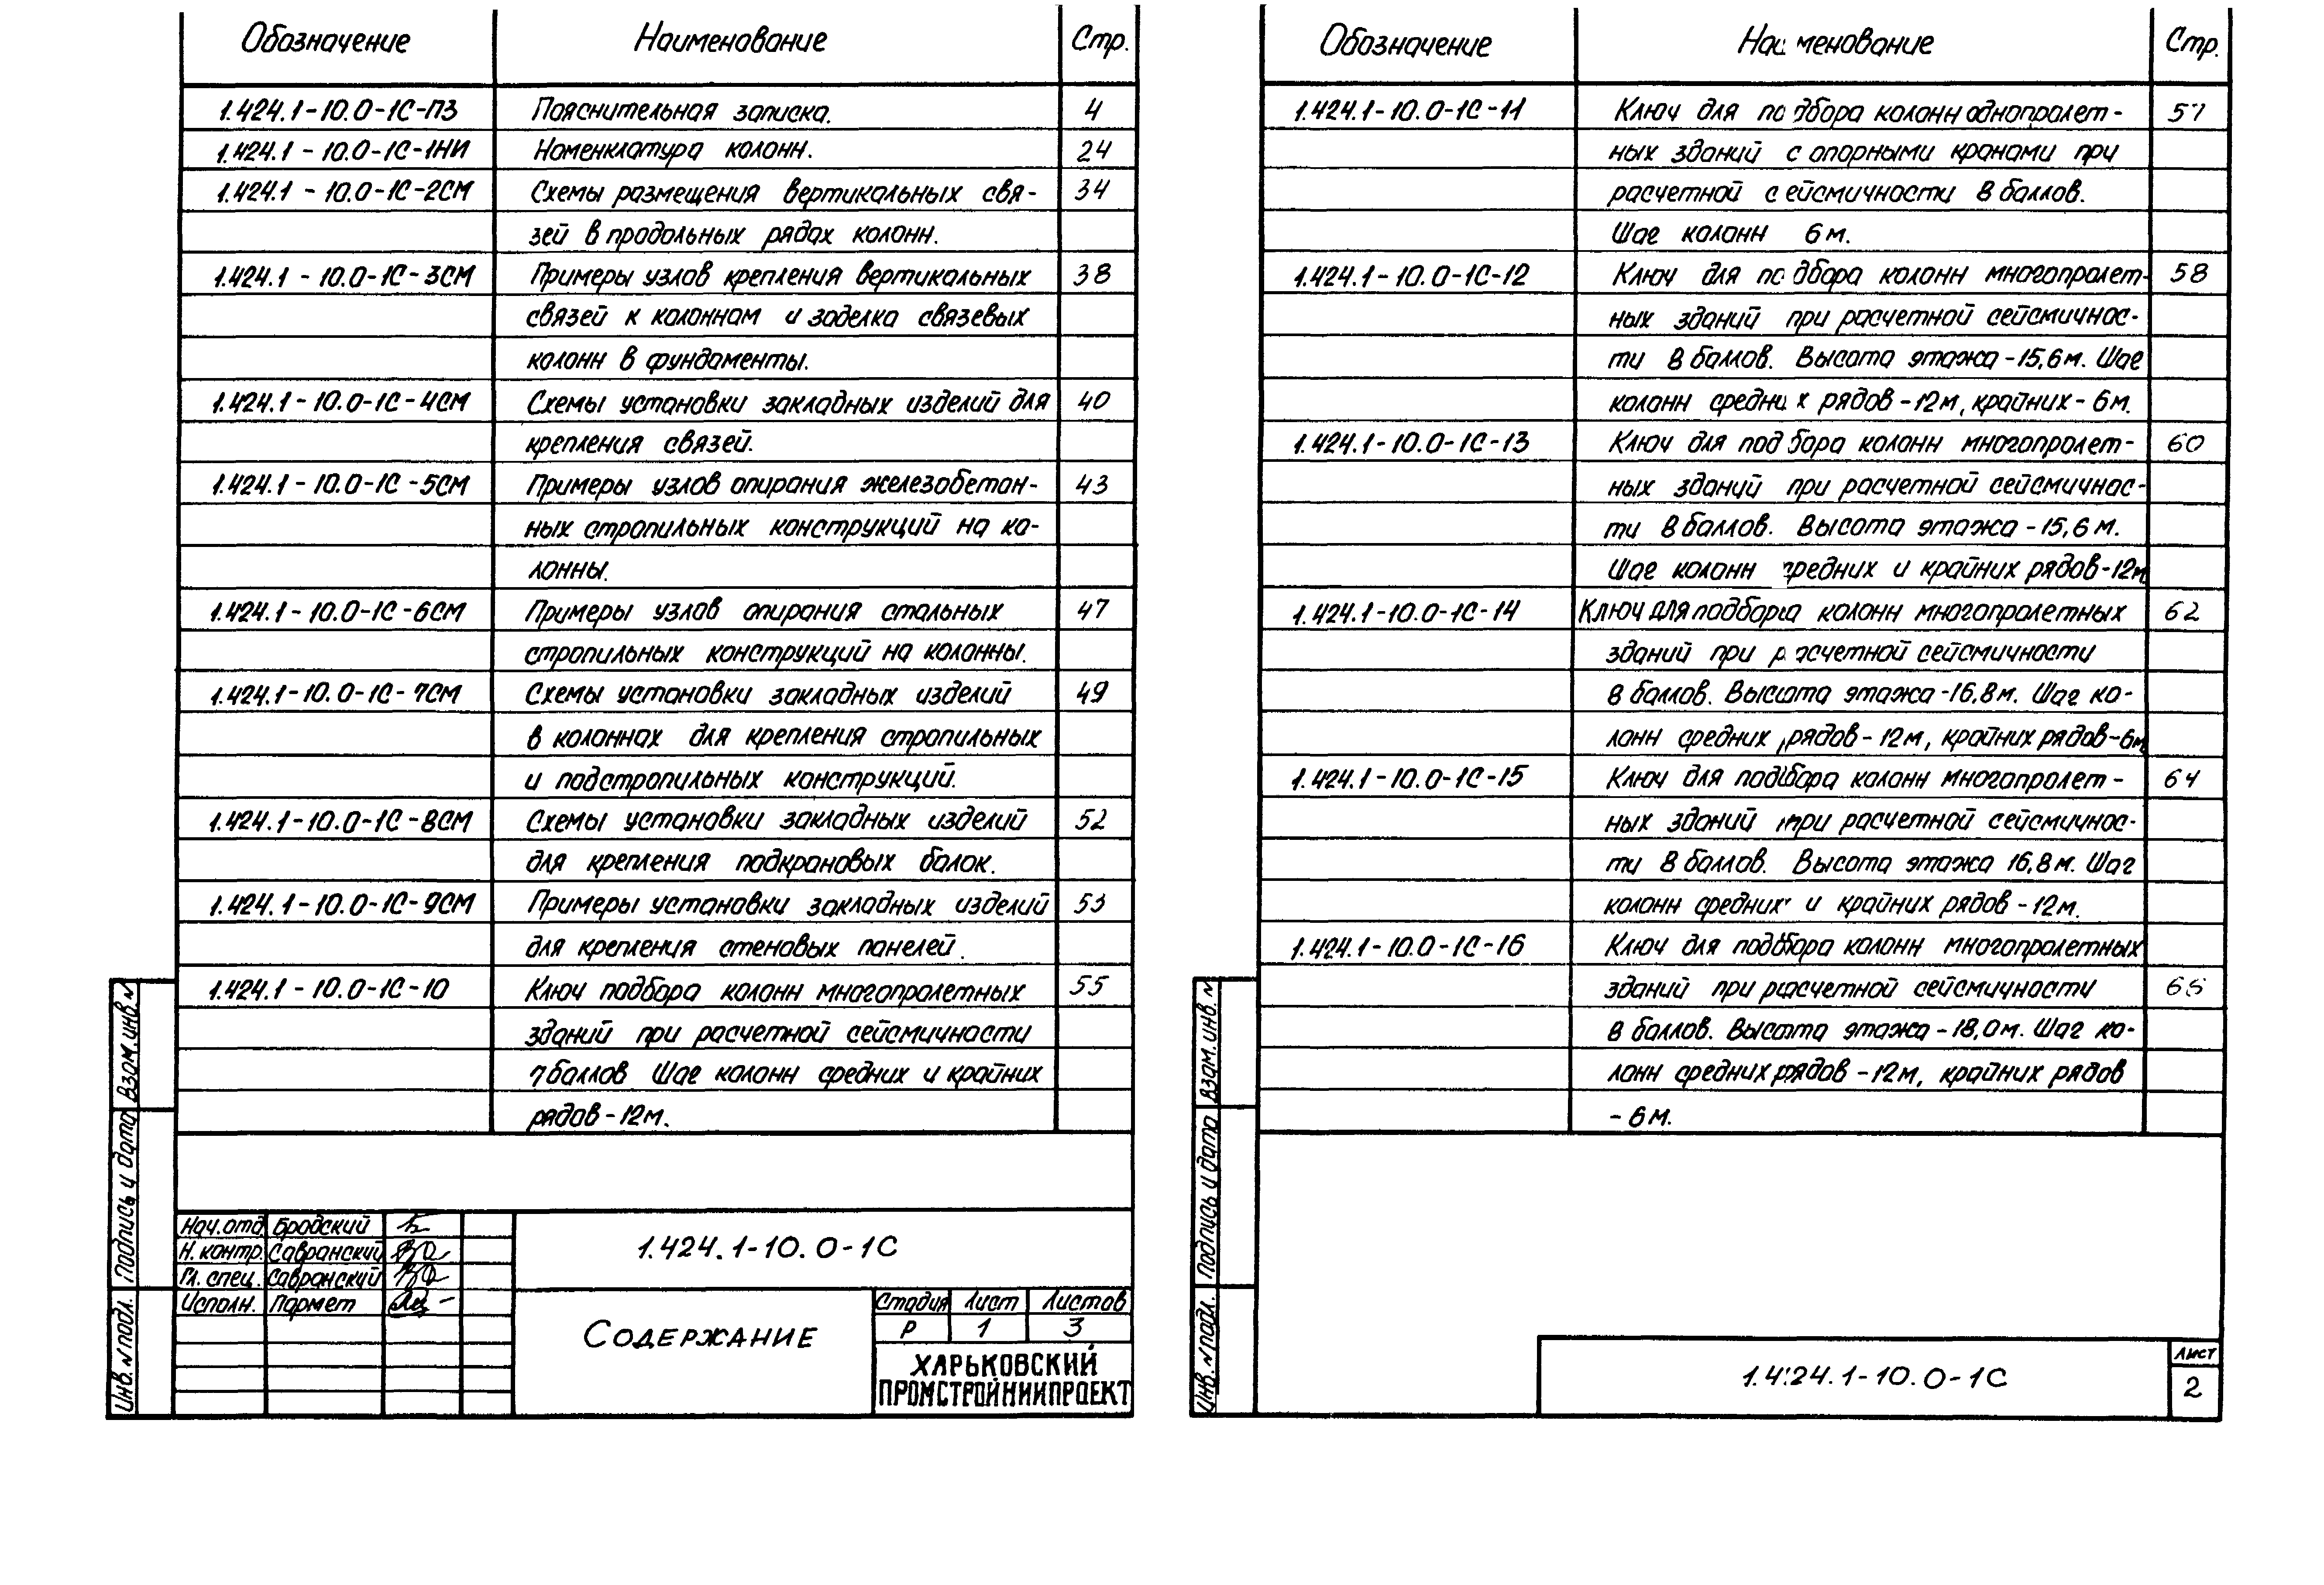 Обозначение Наименование Стр.
1.424.1-10.0-1С-ПЗ Пояснительная записка. 4
1.424.1-10.0-1С-1НИ Номенклатура колонн. 24
1.424.1-10.0-1С-2СМ Схемы размещения вертикальных свя- 34
зей в продольных рядах колонн.
1.424.1-10.0-1С-3СМ Примеры узлов крепления вертикальных 38
связей к колоннам и заделка связевых
колонн в фундаменты.
1.424.1-10.0-1С-4СМ Схемы установки закладных изделий для 40
крепления связей.
1.424.1-10.0-1С-5СМ Примеры узлов опирания железобетон- 43
ных стропильных конструкций на ко-
лонны.
1.424.1-10.0-1С-6СМ Примеры узлов опирания стальных 47
стропильных конструкций на колонны.
1.424.1-10.0-1С-7СМ Схемы установки закладных изделий 49
в колоннах для крепления стропильных
и подстропильных конструкций.
1.424.1-10.0-1С-8СМ Схемы установки закладных изделий 52
для крепления подкрановых балок.
1.424.1-10.0-1С-9СМ Примеры установки закладных изделий 53
для крепления стеновых панелей.
1.424.1-10.0-1С-10 Ключ подбора колонн многопролетных 55
зданий при расчетной сейсмичности
7 баллов Шаг колонн средних и крайних
рядов-12м.
Взам. инв. N
Подпись и дата
Инв. N подл.
Нач.отд. Бродский
Н. контр. Савранский
Гл. спец. Савранский
Исполн. Пармет
1.424.1-10.0-1С
Содержание
Стадия Лист Листов
Р 1 3
ХАРЬКОВСКИЙ
ПРОМСТРОЙНИИПРОЕКТ
Обозначение Наименование Стр.
1.424.1-10.0-1С-11 Ключ для подбора колонн однопролет- 57
ных зданий с опорными кранами при
расчетной сейсмичности 8 баллов.
Шаг колонн 6м.
1.424.1-10.0-1С-12 Ключ для подбора колонн многопролет- 58
ных зданий при расчетной сейсмичнос-
ти 8 баллов. Высота этажа-15,6м. Шаг
колонн средних рядов-12м, крайних-6м.
1.424.1-10.0-1С-13 Ключ для подбора колонн многопролет- 60
ных зданий при расчетной сейсмичнос-
ти 8 баллов. Высота этажа-15,6м.
Шаг колонн средних и крайних рядов-12м
1.424.1-10.0-1С-14 Ключ для подбора колонн многопролетных 62
зданий при расчетной сейсмичности
8 баллов. Высота этажа-16,8м. Шаг ко-
лонн средних рядов-12м, крайних рядов-6м
1.424.1-10.0-1С-15 Ключ для подбора колонн многопролет- 64
ных зданий при расчетной сейсмичнос-
ти 8 баллов. Высота этажа 16,8м. Шаг
колонн средних и крайних рядов-12м.
1.424.1-10.0-1С-16 Ключ для подбора колонн многопролетных
зданий при расчетной сейсмичности
8 баллов. Высота этажа-18,0м. Шаг ко-
лонн средних рядов-12м, крайних рядов
-6м.
Взам. инв. N
Подпись и дата
Инв. N подл.
1.424.1-10.0-1С
Лист
2